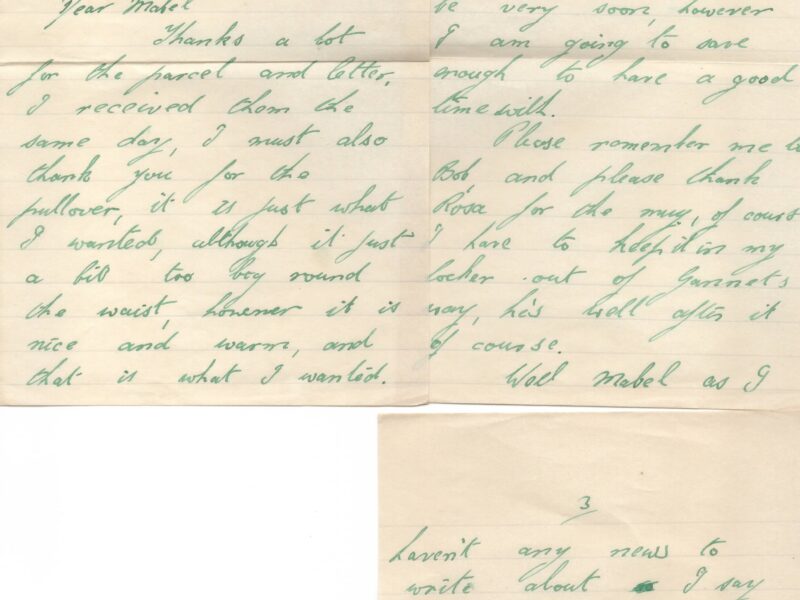 Dear Mabel
Thanks a lot
for the parcel and letter,
I received them the
same day, I must also
thank you for the
pullover, it is just what
I wanted, although it just
a bit too big round
the waist, however it is
nice and warm, and
that is what I wanted.
be very soon, however
I am going to save
enough to have a good
time with.
Please remember me to
Bob and please thank
Rosa for the mug, of course
I have to keep it in my
locker out of Gannets
way, he's well after it
of course.
Well Mabel as I
3
haven't any news to
write about I say